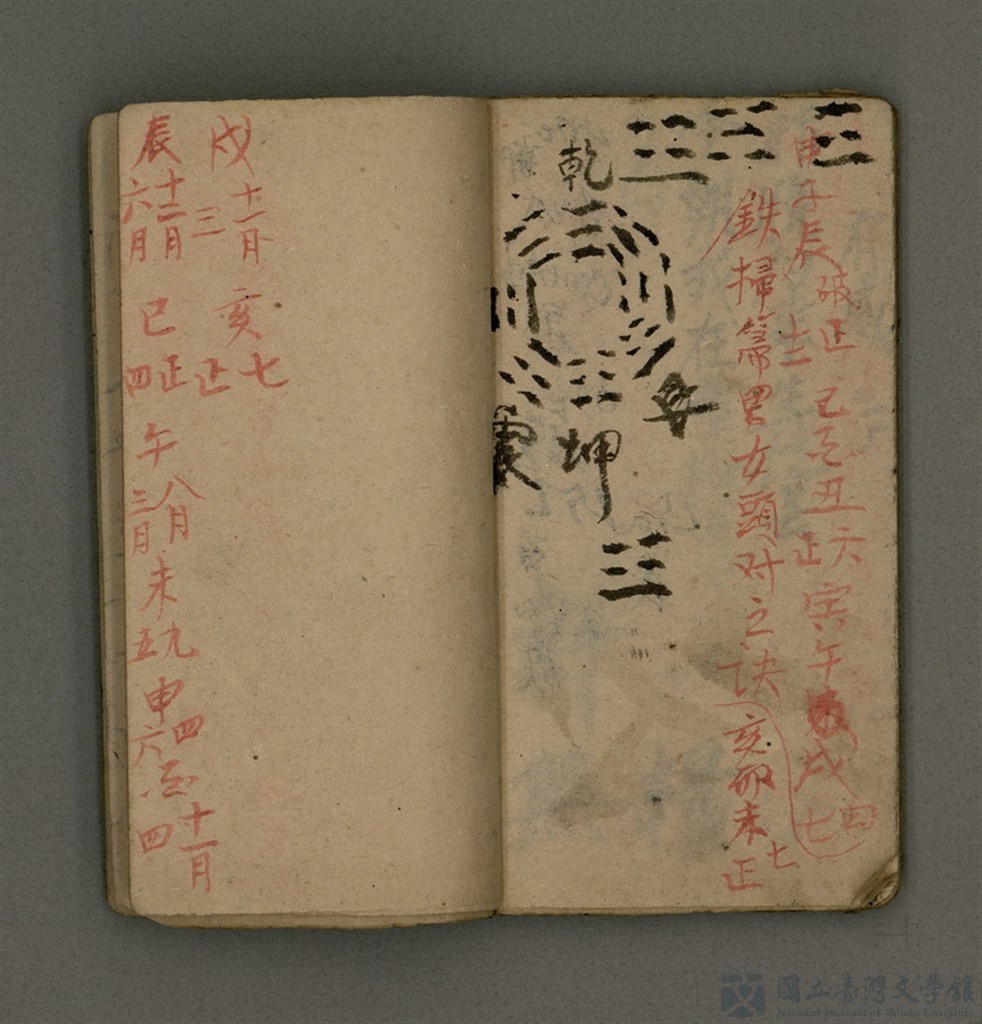 申子辰破正 巳酉丑六 寅午戌七
十二 正 四
鉄掃箒男女頭对之訣 亥卯未正
七
乾
坤
震
戌 十一月 三 亥 七 正
辰 十二月 六月 巳 正 四 午 八月 三月 未 九 五 申 四 六 酉 十一月 四
國立臺灣文學館
National Museum of Taiwan Literature